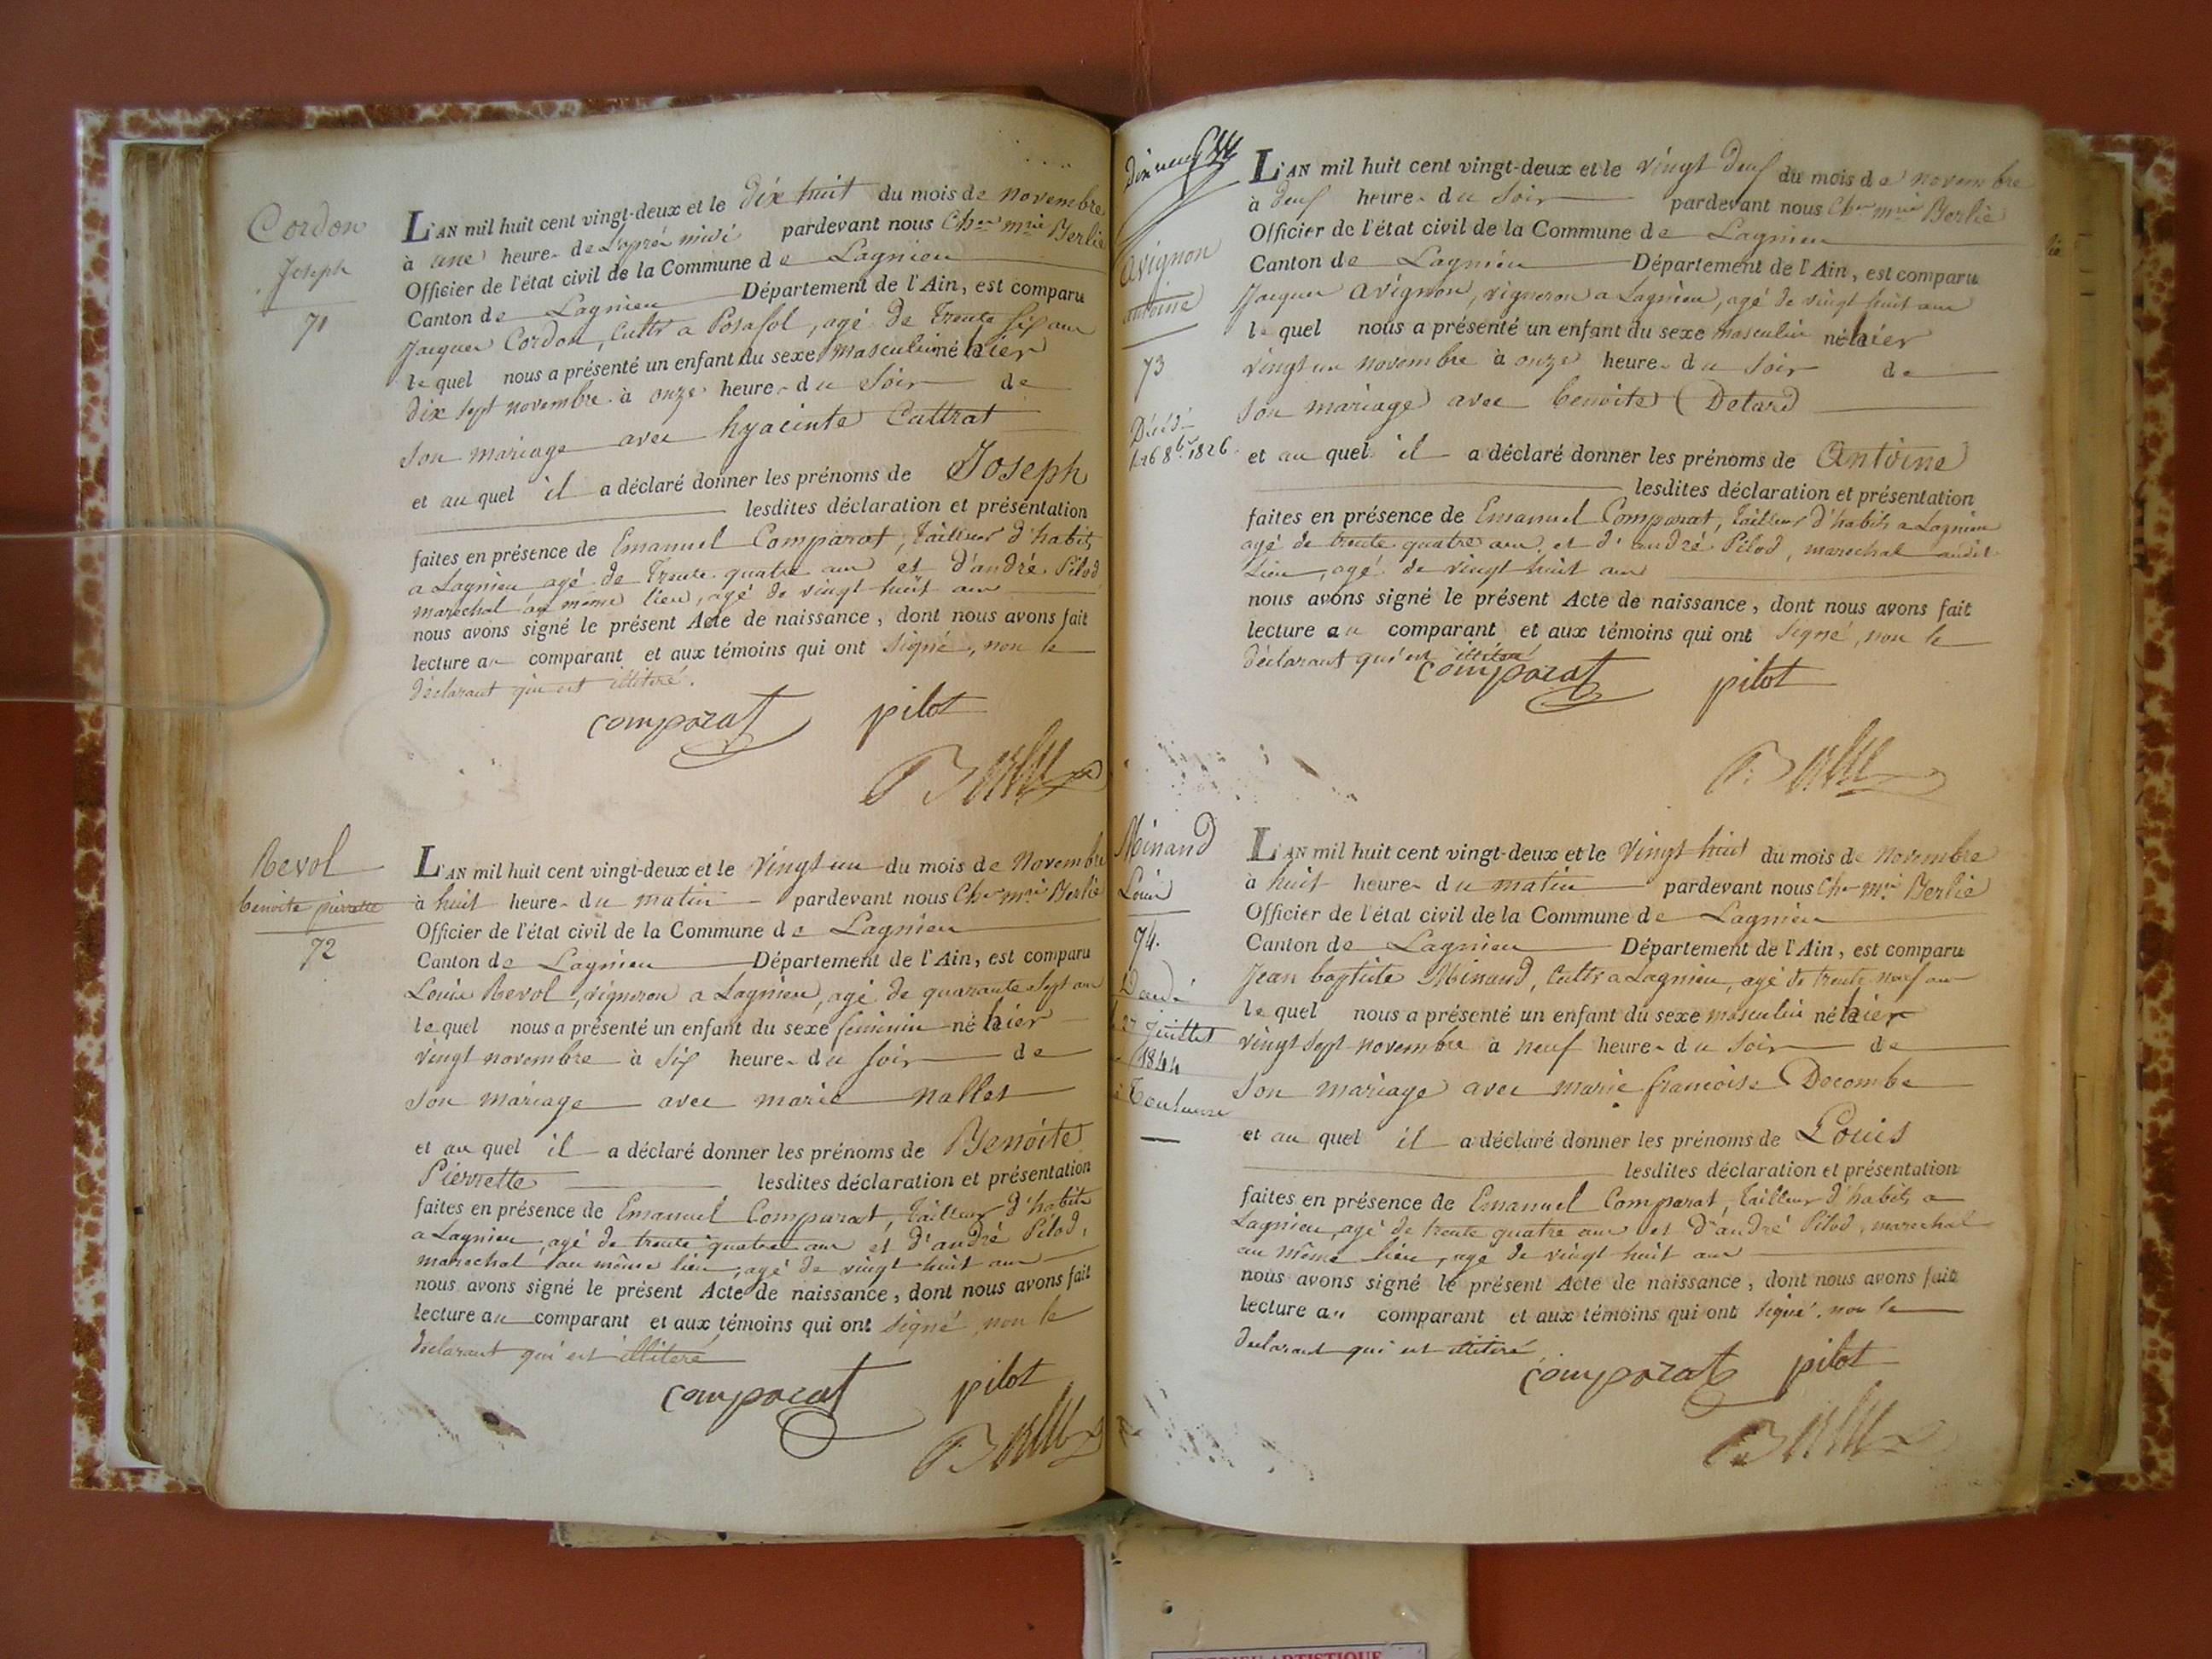 Cordon
Joseph
71
L'AN mil huit cent vingt-deux et le dix huit du mois de novembre
à une heure de l'après midi pardevant nous Cher mrie Berlie
Officier de l'état civil de la Commune de Lagnieu
Canton de Lagnieu Département de l'Ain, est comparu
Jacques Cordon, Cultr a Posafol, agé de trente six ans
lequel nous a présenté un enfant du sexe masculin né hier
dix sept novembre à onze heures du soir de
son mariage avec hyacinte Cattrat
et au quel il a déclaré donner les prénoms de Joseph
lesdites déclaration et présentation
faites en présence de Emanuel Comparat, tailleur d'habits
a Lagnieu, agé de trente quatre ans et d'andré Pilod
marechal au même lieu, agé de vingt huit ans
nous avons signé le présent Acte de naissance, dont nous avons fait
lecture au comparant et aux témoins qui ont signé, non le
déclarant qui est illitéré.
comparat pilot
Berlie
Revol
benoite pierrette
72
L'AN mil huit cent vingt-deux et le vingt un du mois de Novembre
à huit heures du matin pardevant nous Cher mrie Berlie
Officier de l'état civil de la Commune de Lagnieu
Canton de Lagnieu Département de l'Ain, est comparu
Louis Revol, vigneron a Lagnieu, agé de quarante sept ans
lequel nous a présenté un enfant du sexe feminin né hier
vingt novembre à six heures du soir de
son mariage avec marie nallet
et au quel il a déclaré donner les prénoms de Benoite
Pierrette lesdites déclaration et présentation
faites en présence de Emanuel Comparat, tailleur d'habits
a Lagnieu, agé de trente quatre ans et d'andré Pilod,
marechal au même lieu, agé de vingt huit ans
nous avons signé le présent Acte de naissance, dont nous avons fait
lecture au comparant et aux témoins qui ont signé non le
déclarant qui est illiteré
comparat pilot
Berlie
Dix neuf
avignon
antoine
73
Décès
le 26 8bre 1826
L'AN mil huit cent vingt-deux et le vingt deux du mois de novembre
à deux heures du soir pardevant nous Cher mrie Berlie
Officier de l'état civil de la Commune de Lagnieu
Canton de Lagnieu Département de l'Ain, est comparu
Jacques avignon, vigneron a Lagnieu, agé de vingt huit ans
lequel nous a présenté un enfant du sexe masculin né hier
vingt un novembre à onze heures du soir de
son mariage avec benoite Detard
et au quel il a déclaré donner les prénoms de Antoine
lesdites déclaration et présentation
faites en présence de Emanuel Comparat, tailleur d'habits a Lagnieu
agé de trente quatre ans, et d'andré Pilod, marechal audit
Lieu, agé de vingt huit ans
nous avons signé le présent Acte de naissance, dont nous avons fait
lecture au comparant et aux témoins qui ont signé, non le
déclarant qui est illiteré
comparat pilot
Berlie
Minand
Louis
74.
le 27 Juillet
1844
à Toulouse
L'AN mil huit cent vingt-deux et le vingt huit du mois de novembre
à huit heures du matin pardevant nous Cher mrie Berlie
Officier de l'état civil de la Commune de Lagnieu
Canton de Lagnieu Département de l'Ain, est comparu
Jean baptiste Minand, Cultr a Lagnieu, agé de trente neuf ans
lequel nous a présenté un enfant du sexe masculin né hier
vingt sept novembre à neuf heures du soir de
son mariage avec marie francoise Decombe
et au quel il a déclaré donner les prénoms de Louis
lesdites déclaration et présentation
faites en présence de Emanuel Comparat, tailleur d'habits a
Lagnieu, agé de trente quatre ans et d'andré Pilod, marechal
au même lieu, agé de vingt huit ans
nous avons signé le présent Acte de naissance, dont nous avons fait
lecture au comparant et aux témoins qui ont signé, non le
declarant qui est illitéré
comparat pilot
Berlie
ARTISTIQUE